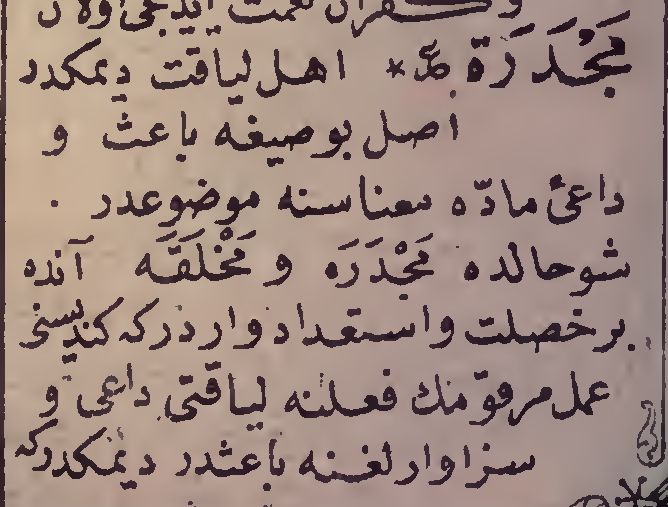 و كفران نعمت ايديجى اوله
مَجْدَرَة * اهل لياقت ديمكدر
اصل بو صيغه باعث و
داعئ مادّه معناسنه موضوعدر .
شو حالده مَجْدَرَه و مَخْلَقَه آنده
بر خصلت و استعداد واردركه كنديسنى
عمل مرقومنك فعلنه لياقتى داعى و
سزاوارلغنه باعثدر ديمكدركه